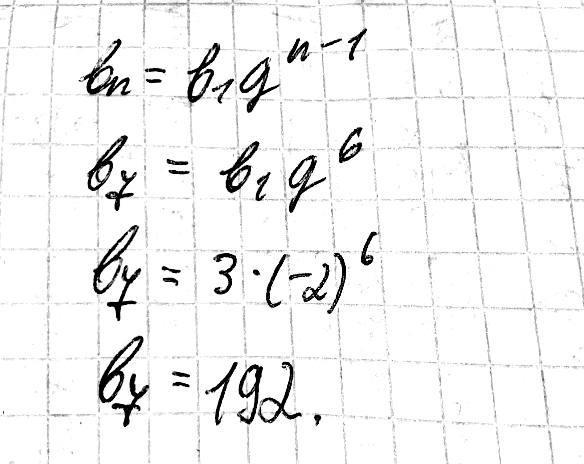 bₙ = b₁qⁿ⁻¹
b₇ = b₁q⁶
b₇ = 3·(-2)⁶
b₇ = 192.